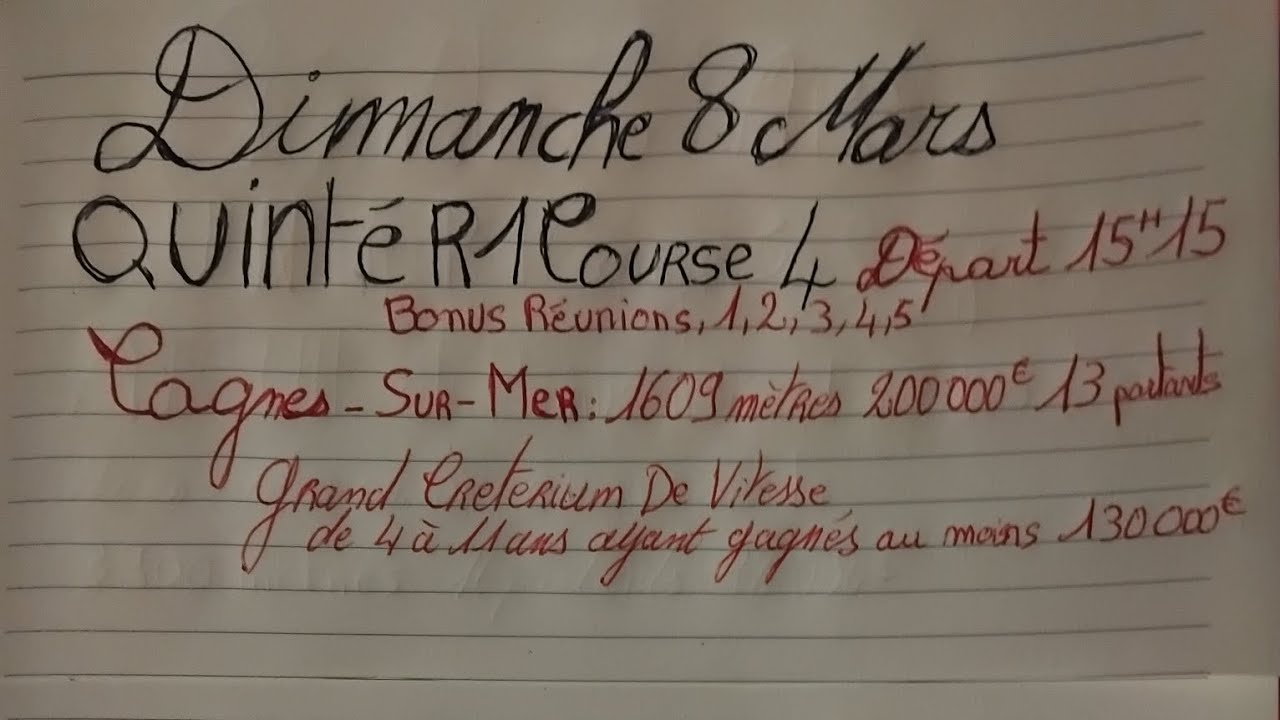 Dimanche 8 Mars
QUINTÉ R1 COURSE 4 Départ 15H15
Bonus Réunions, 1, 2, 3, 4, 5
Cagnes-SUR-MER: 1609 mètres 200000€ 13 partants
GRAND CRETERIUM DE VITESSE
de 4 à 11 ans ayant gagnés au moins 130000€